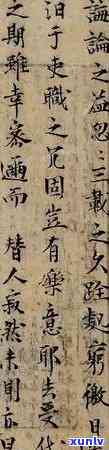 誨論之益忽三載之久跧處窮徼日
汩于吏職之冗固豈有樂意耶去受代
之期雖幸密邇而替人寂然未聞亦日